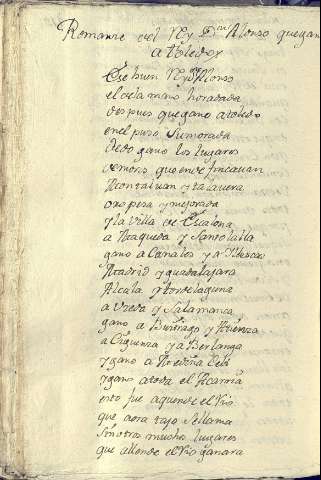 Romanze del Rey Dn Alonso que gano
a toledo
Ese buen Rey Dn Alonso
el de la mano horadada
despues que gano a toledo
en el puso su morada
dedo gano los lugares
de moros que ende fincauan
Montaluan y talauera
oropesa y mejorada
y la villa de Escalona
a Maqueda y Santolalla
gano a Canales y a Illescas
Madrid y guadalajara
Alcala y tordelaguna
a Vzeda y Salamanca
gano a Buitrago y Atienza
a Ciguenza y a Berlanga
y gano a Medina Celi
y gano a toda el Alcarria
esto fue aquende el Rio
que aora tajo se llama
sin otros muchos lugares
que allende el Rio ganara